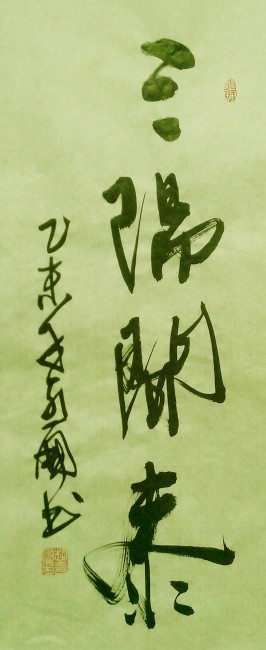 三陽開泰
乙未年國書